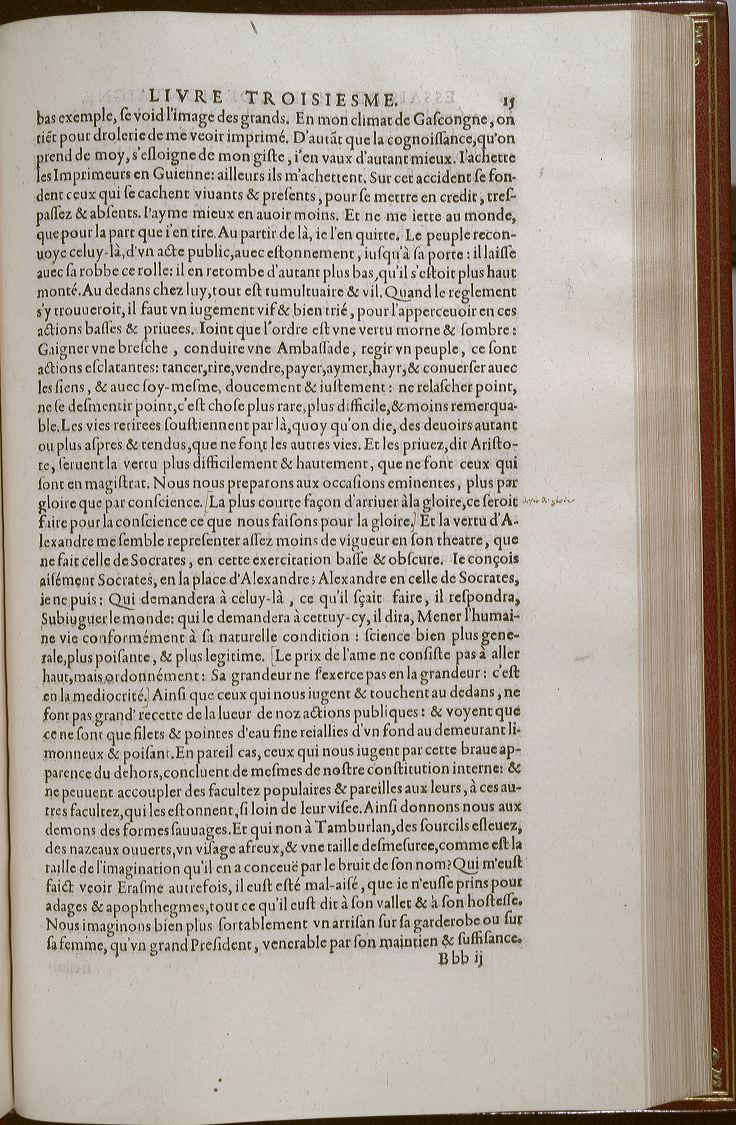 LIVRE TROISIESME. 15
bas exemple, ſe void l'image des grands. En mon climat de Gaſcongne, on
tiẽt pour drolerie de me veoir imprimé. D'autãt que la cognoiſſance, qu'on
prend de moy, s'eſloigne de mon giſte, i'en vaux d'autant mieux. I'achette
les Imprimeurs en Guienne: ailleurs ils m'achettent. Sur cet accident ſe fon-
dent ceux qui ſe cachent viuants & preſents, pour ſe mettre en credit, treſ-
paſſez & abſents. I'ayme mieux en auoir moins. Et ne me iette au monde,
que pour la part que i'en tire. Au partir de là, ie l'en quitte. Le peuple recon-
uoye celuy-là, d'vn acte public, auec eſtonnement, iuſqu'à ſa porte: il laiſſe
auec ſa robbe ce rolle: il en retombe d'autant plus bas, qu'il s'eſtoit plus haut
monté. Au dedans chez luy, tout eſt tumultuaire & vil. Quand le reglement
s'y trouueroit, il faut vn iugement vif & bien trié, pour l'apperceuoir en ces
actions baſſes & priuees. Ioint que l'ordre eſt vne vertu morne & ſombre:
Gaigner vne breſche, conduire vne Ambaſſade, regir vn peuple, ce ſont
actions eſclatantes: tancer, rire, vendre, payer, aymer, hayr, & conuerſer auec
les ſiens, & auec ſoy-meſme, doucement & iuſtement: ne relaſcher point,
ne ſe deſmentir point, c'eſt choſe plus rare, plus difficile, & moins remerqua-
ble. Les vies retirees ſouſtiennent par là, quoy qu'on die, des deuoirs autant
ou plus aſpres & tendus, que ne font les autres vies. Et les priuez, dit Ariſto-
te, ſeruent la vertu plus difficilement & hautement, que ne font ceux qui
ſont en magiſtrat. Nous nous preparons aux occaſions eminentes, plus par
gloire que par conſcience. [La plus courte façon d'arriuer à la gloire, ce ſeroit
faire pour la conſcience ce que nous faiſons pour la gloire.] Et la vertu d'A-
lexandre me ſemble repreſenter aſſez moins de vigueur en ſon theatre, que
ne fait celle de Socrates, en cette exercitation baſſe & obſcure. Ie conçois
aiſément Socrates, en la place d'Alexandre: Alexandre en celle de Socrates,
ie ne puis: Qui demandera à celuy-là, ce qu'il ſçait faire, il reſpondra,
Subiuguer le monde: qui le demandera à cettuy-cy, il dira, Mener l'humai-
ne vie conformément à ſa naturelle condition: ſcience bien plus gene-
rale, plus poiſante, & plus legitime. [Le prix de l'ame ne conſiſte pas à aller
haut, mais ordonnément: Sa grandeur ne ſ'exerce pas en la grandeur: c'eſt
en la mediocrité.] Ainſi que ceux qui nous iugent & touchent au dedans, ne
font pas grand' recette de la lueur de noz actions publiques: & voyent que
ce ne ſont que filets & pointes d'eau fine reiallies d'vn fond au demeurant li-
monneux & poiſant. En pareil cas, ceux qui nous iugent par cette braue ap-
parence du dehors, concluent de meſmes de noſtre conſtitution interne: &
ne peuuent accoupler des facultez populaires & pareilles aux leurs, à ces au-
tres facultez, qui les eſtonnent, ſi loin de leur viſee. Ainſi donnons nous aux
demons des formes ſauuages. Et qui non à Tamburlan, des ſourcils eſleuez,
des nazeaux ouuerts, vn viſage afreux, & vne taille deſmeſuree, comme eſt la
taille de l'imagination qu'il en a conceuë par le bruit de ſon nom? Qui m'euſt
faict veoir Eraſme autrefois, il euſt eſté mal-aiſé, que ie n'euſſe prins pour
adages & apophthegmes, tout ce qu'il euſt dit à ſon vallet & à ſon hoſteſſe.
Nous imaginons bien plus ſortablement vn artiſan ſur ſa garderobe ou ſur
ſa femme, qu'vn grand Preſident, venerable par ſon maintien & ſuffiſance.
Bbb ij